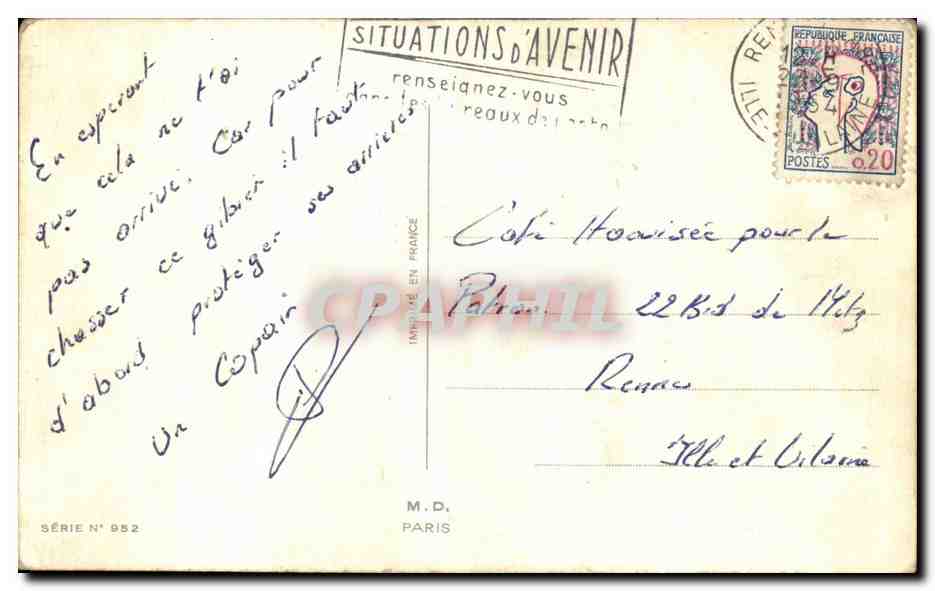 SITUATIONS D'AVENIR
renseignez-vous
REPUBLIQUE FRANÇAISE
POSTES
0,20
En esperant
que cela ne t'ai
pas arrivé. Car pour
chasser ce gibier il faut
d'abord protéger ses arrières
Un Copain
IMPRIMÉ EN FRANCE
CPAPHIL
Café pour le
Patron 22 Bis de Metz
Rennes
Ille et Vilaine
M.D.
PARIS
SÉRIE N° 952